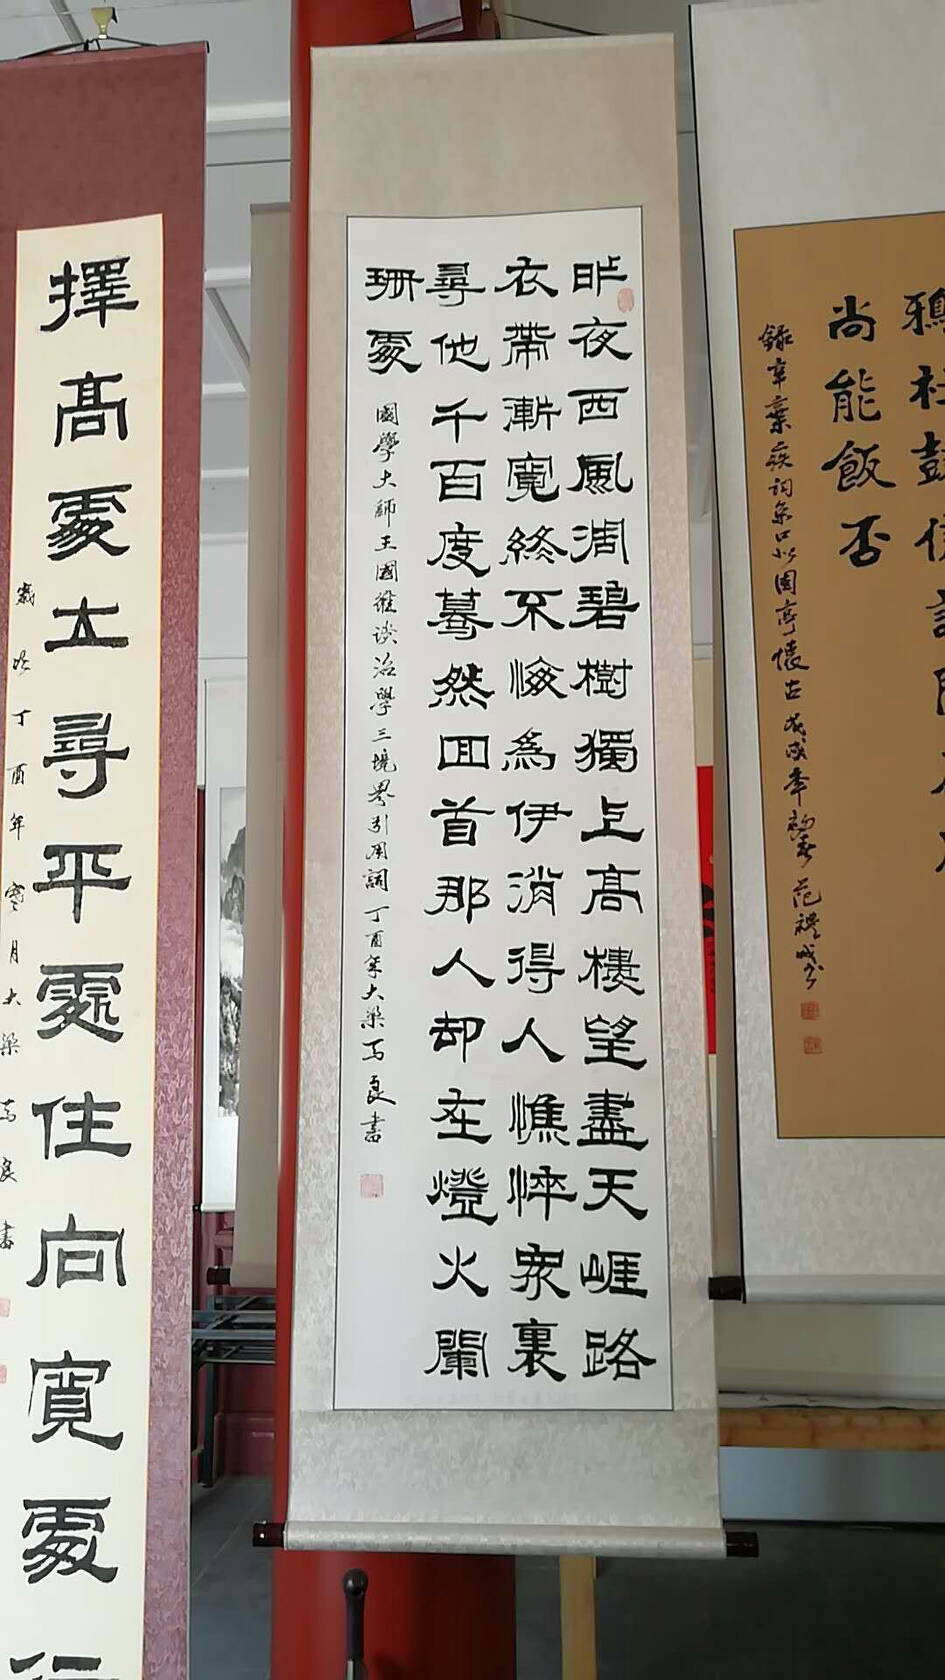 鴉社鼓
尚能飯否
錄辛棄疾詞京口北固亭懷古 戊戌年初春 范禮成書
昨夜西風凋碧樹獨上高樓望盡天崕路
衣帶漸寬終不悔為伊消得人憔悴眾裏
尋他千百度驀然回首那人却在燈火闌
珊處
國學大師王國維談治學三境界引用詞 丁酉年大梁馬良書
擇高處立尋平處住向寬處行
歲次丁酉年寒月大梁馬良書